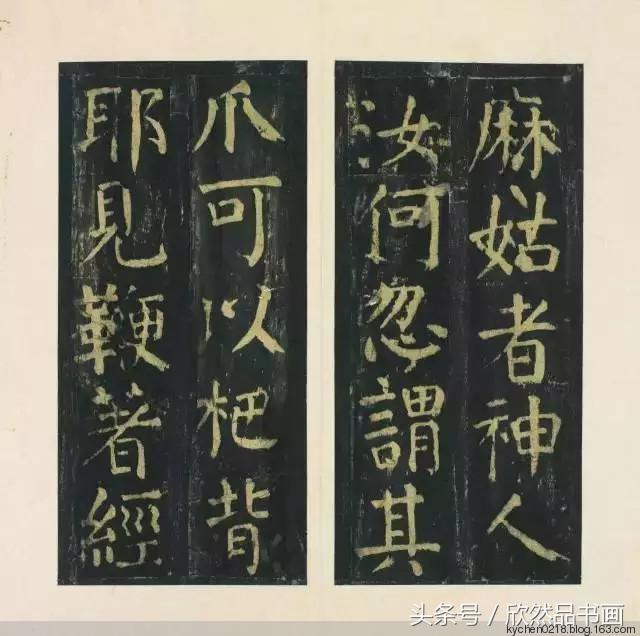 麻姑者神人
汝何忽謂其
爪可以杷背
耶見鞭著經
头条号 / 欣然品书画
kychen0218.blog.163.com